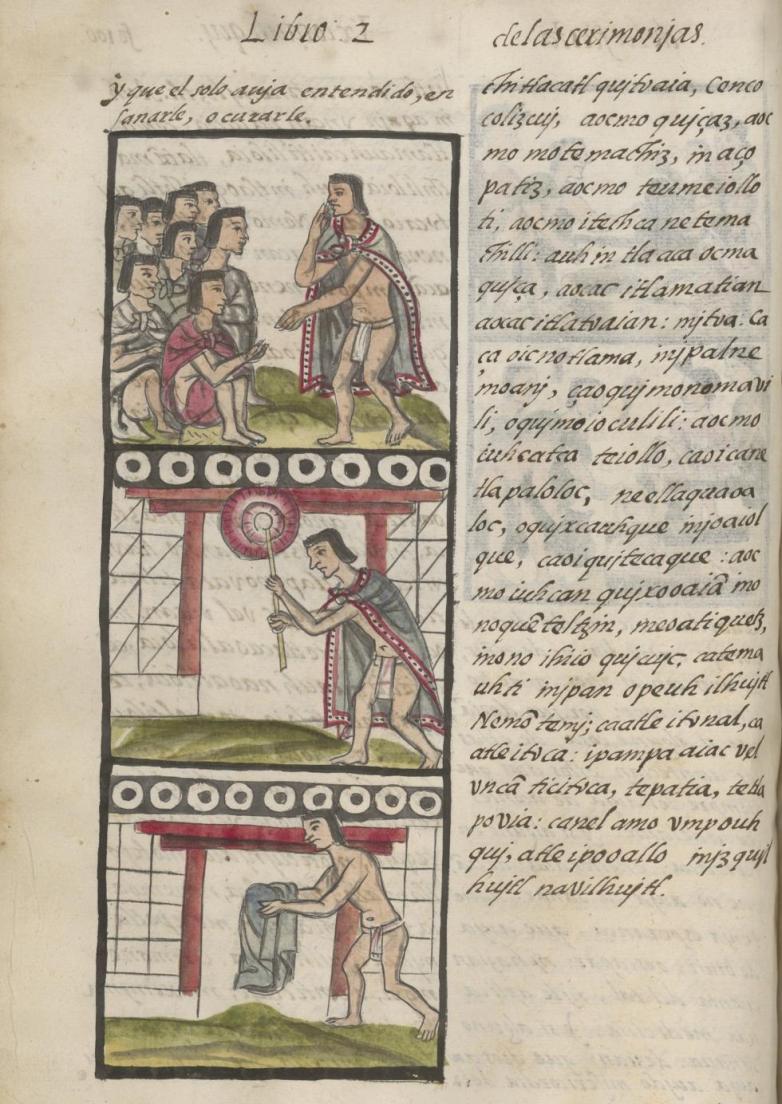 Libro. 2
delas cerimonjas.
y que el solo auja entendido, en
sanarle, o curarle.
thitlacatl qujtvaia, conco
colizcuj, aocmo qujçaz, aoc
mo motemachiz, in aço
patiz, aocmo teumeiollo
ti, aocmo itech ca netema
chilli: auh in tlacaocma
qujça, aocac itlamatian
aocac itlatvaian: mjtva. Ca
ça oicnotlama, injpalne
moanj, çaoqujmonomavi
li, oqujmoioculili: aocmo
iuhcatca teiollo, caoicane
tlapaloloc, neellaquaoa
loc, oqujxcauhque injoaiol
que, caoiqujtecaque: aoc
mo iuhcan qujxooaiã ino
noquẽteltzin, meoatiquetz,
inonoihiio qujcujc, catema
uhti injpan opeuh ilhujtl
Nemõtemj; caatle itvnal, ca
atle itvca: ipampa aiac vel
vncã ticitvca, tepatia, tetla
povia: canel amo vmpouh
quj, atle ipooallo injzqujl
hujtl navilhujtl.